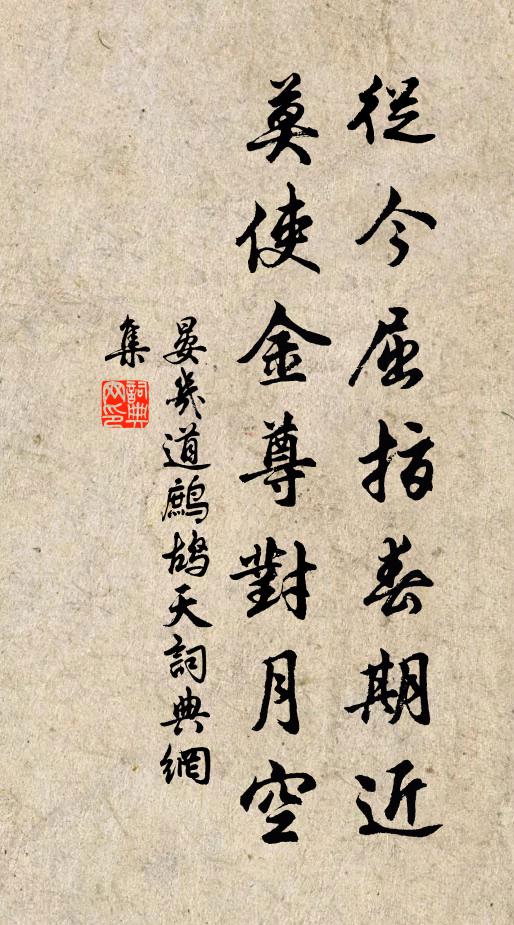 從今屈指春期近
莫使金尊對月空
晏幾道鷓鴣天詞典網
集
詞典
网印